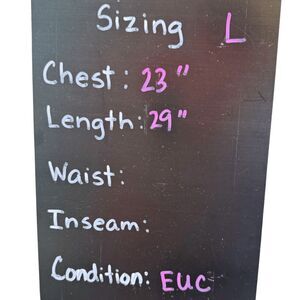 Sizing L
Chest: 23"
Length: 29"
Waist:
Inseam:
Condition: EUC